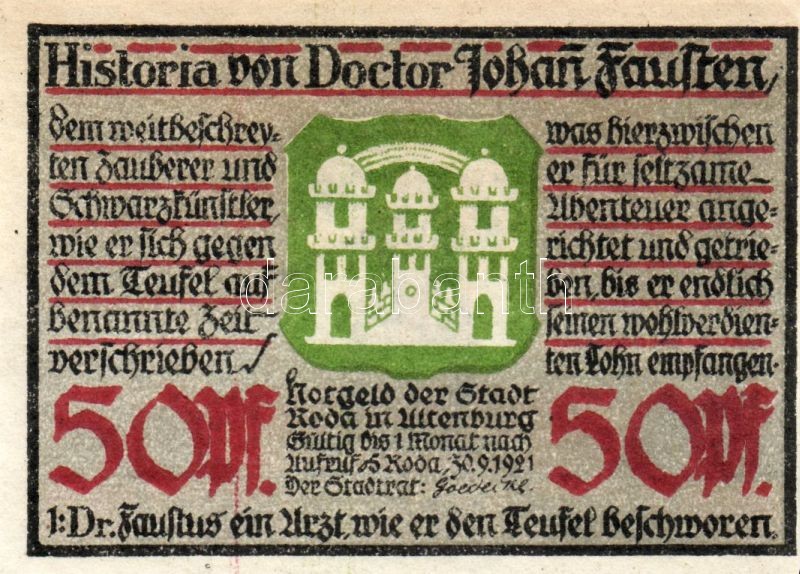 Historia von Doctor Johañ Fausten,
dem weitbeschrey-
ten Zauberer und
Schwarzkünstler,
wie er sich gegen
dem Teufel auf
benannte Zeit
verschrieben,
was hierzwischen
er für seltzame
Abenteuer ange-
richtet und getrie-
ben, bis er endlich
seinen wohlverdien-
ten Lohn empfangen.
darabanth
50Pf.
Notgeld der Stadt
Roda in Altenburg
Gültig bis 1 Monat nach
Aufruf Roda, 30.9.1921
Der Stadtrat:
50Pf.
1: Dr. Faustus ein Arzt, wie er den Teufel beschworen.